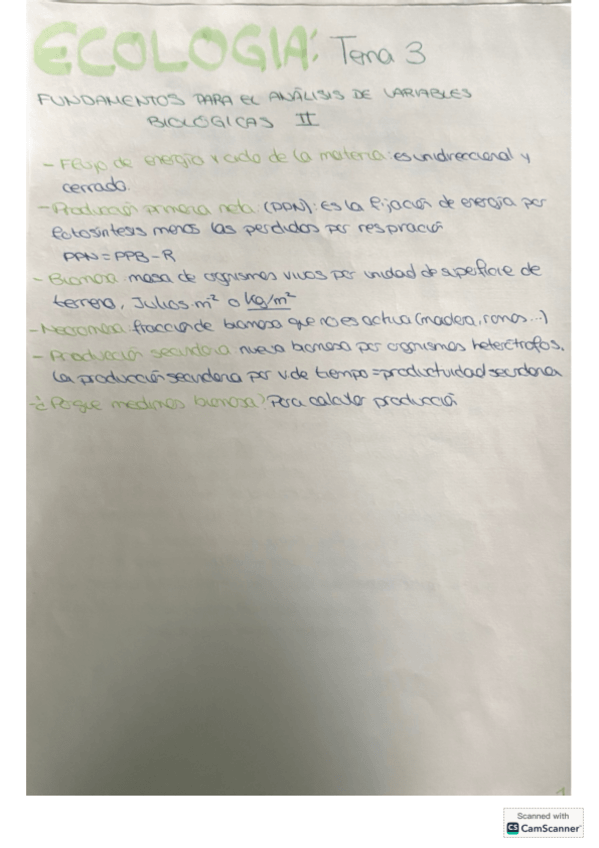 ECOLOGIA: Tema 3
FUNDAMENTOS PARA EL ANÁLISIS DE VARIABLES
BIOLÓGICAS II
- Flujo de energía y ciclo de la materia: es unidireccional y
cerrado.
- Producción primaria neta: (PPN): Es la fijación de energía por
fotosíntesis menos las perdidas por respiración
PPN = PPB - R
- Biomasa: masa de organismos vivos por unidad de superficie de
terreno, Julios. m² o kg/m²
- Necromasa: fracción de biomasa que no es activa (madera, ramas...)
- Producción secundaria: nueva biomasa por organismos heterótrofos.
La producción secundaria por v. de tiempo = productividad secundaria
- ¿Porque medimos biomasa? Para calcular producción
1
Scanned with
CS CamScanner